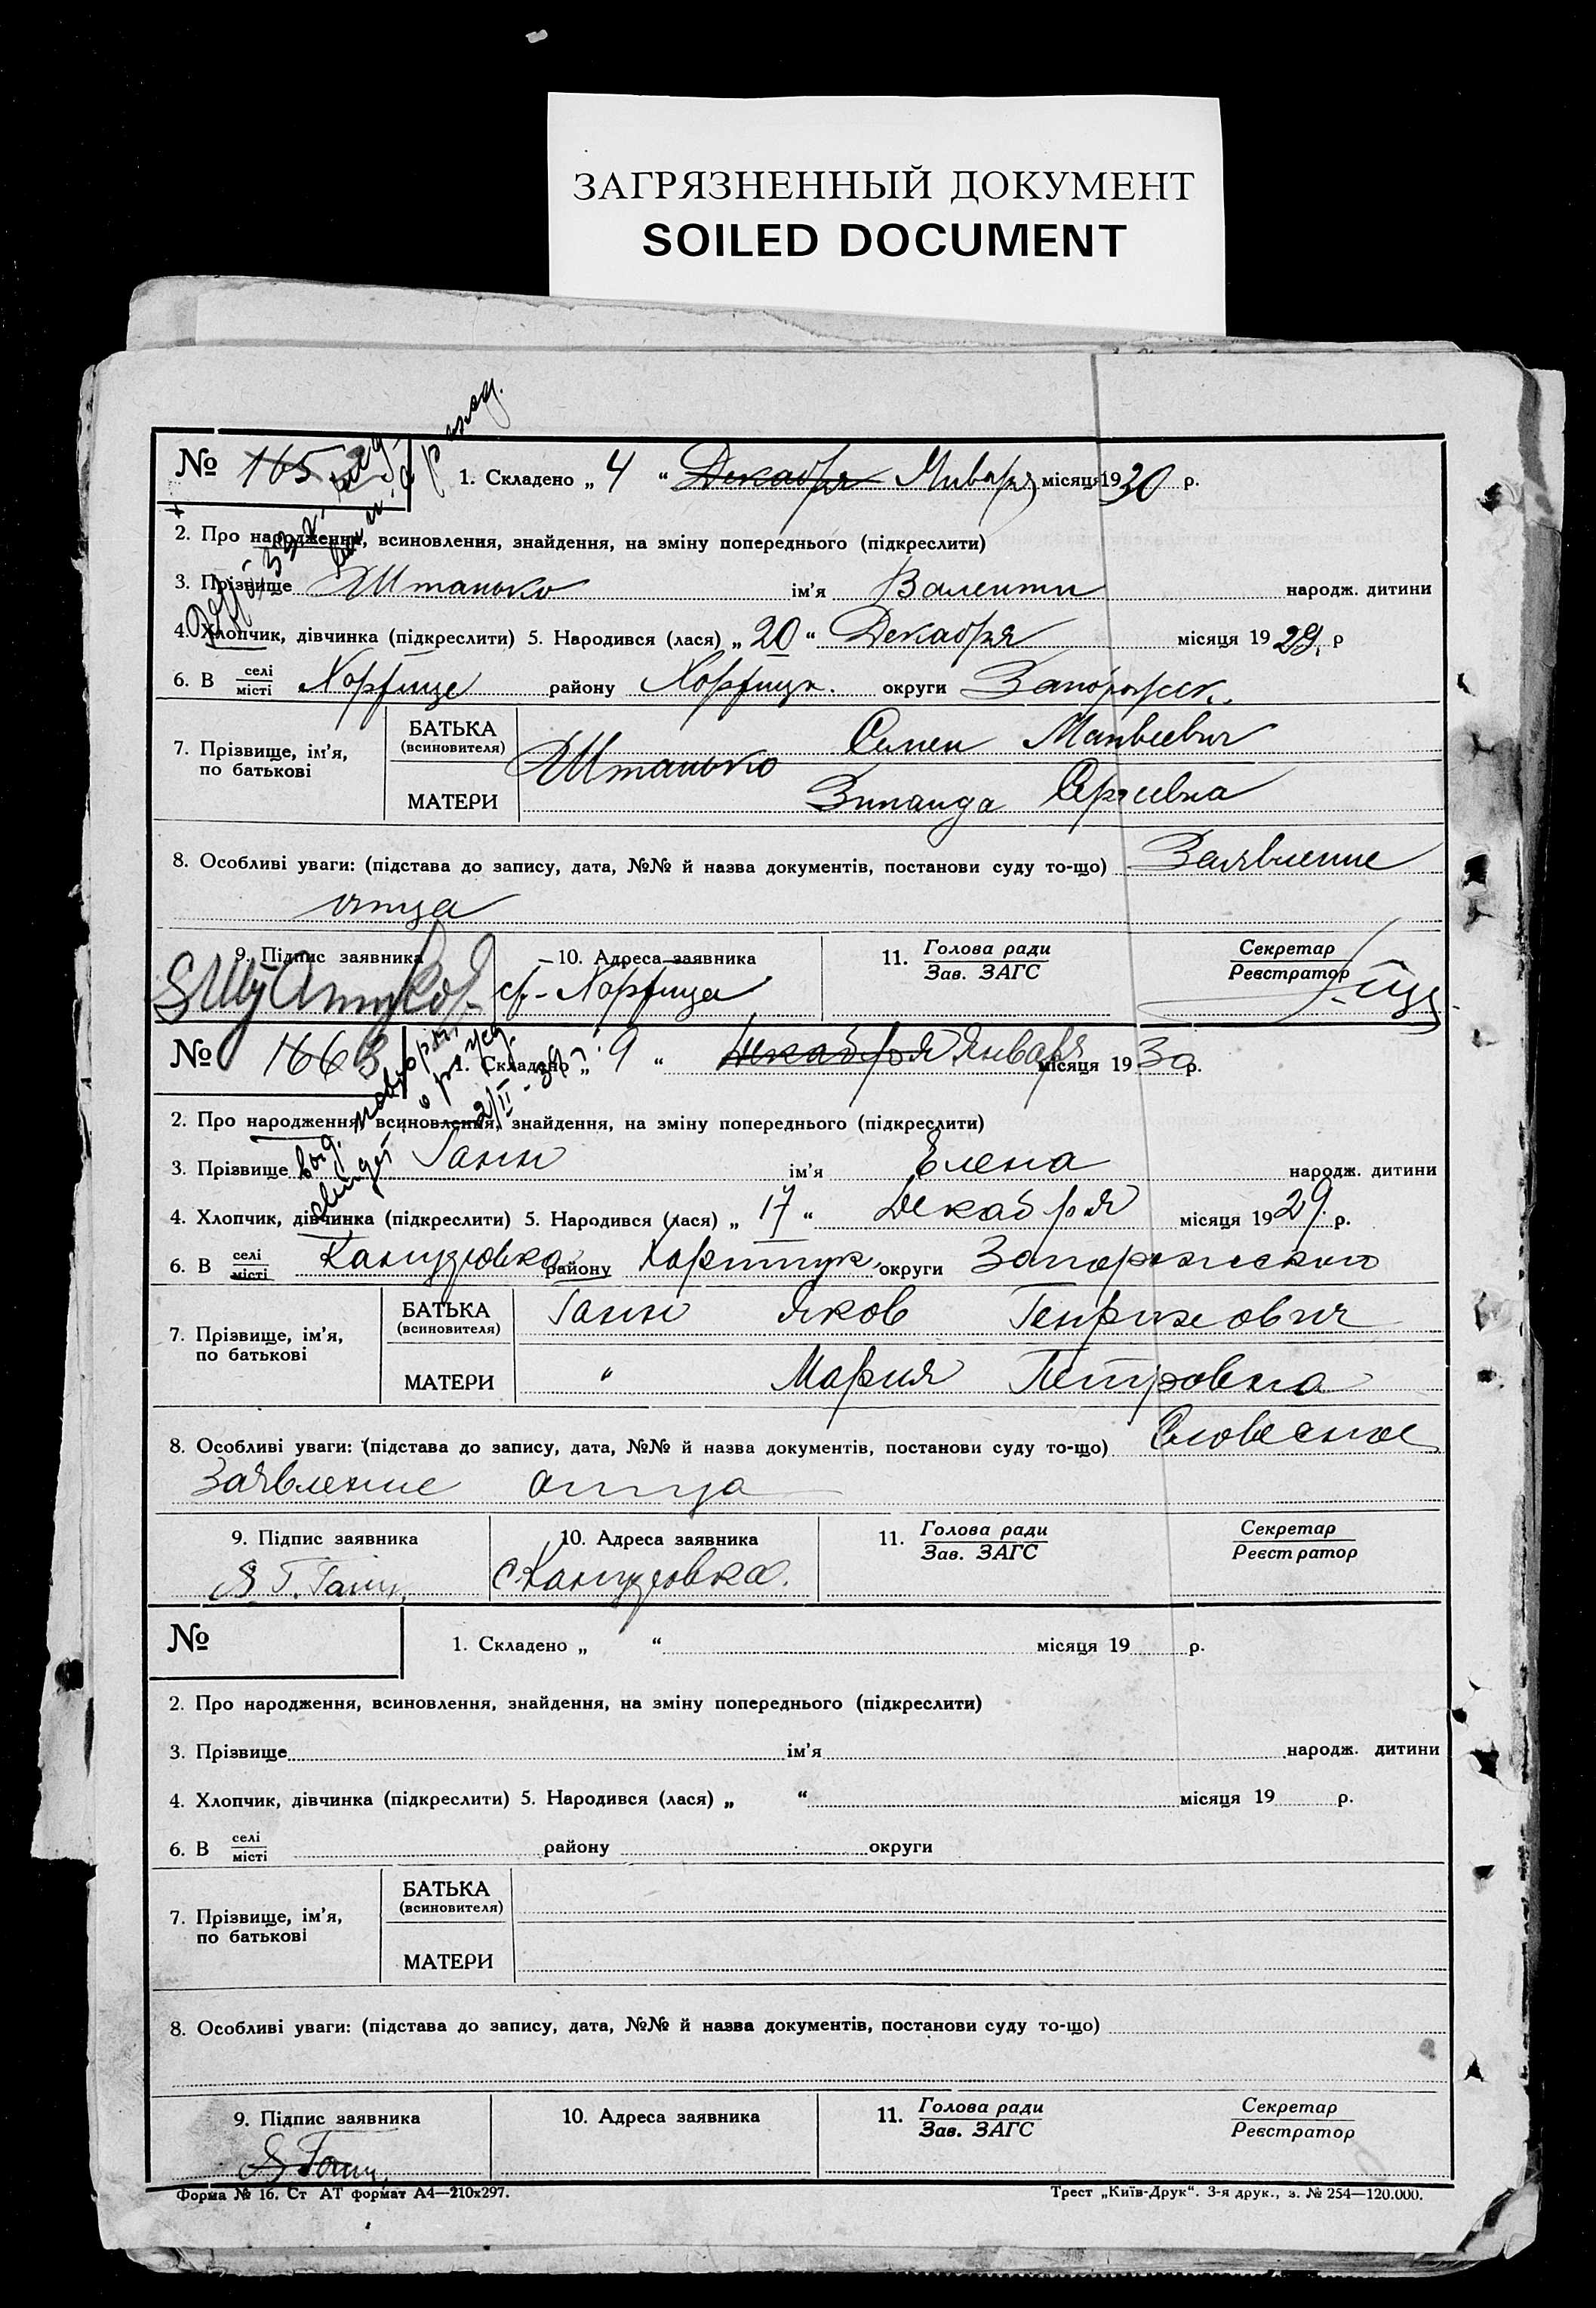 ЗАГРЯЗНЕННЫЙ ДОКУМЕНТ
SOILED DOCUMENT
№ 165 1. Складено „ 4 “ Декабря Января місяця 1930 р.
2. Про народження, всиновлення, знайдення, на зміну попереднього (підкреслити)
3. Прізвище Штанько ім'я Валентин народж. дитини
4. Хлопчик, дівчинка (підкреслити) 5. Народився (лася) „ 20 “ Декабря місяця 1929. р
6. В селі місті Хортице району Хортицк. округи Запорожск.
7. Прізвище, ім'я, по батькові
БАТЬКА (всиновителя) Штанько Семен Матвеевич
МАТЕРИ Зинаида Сергеевна
8. Особливі уваги: (підстава до запису, дата, №№ й назва документів, постанови суду то-що) Заявление
отца
9. Підпис заявника 10. Адреса заявника 11. Голова ради Зав. ЗАГС Секретар Реєстратор
с. Хортица
№ 166 3 1. Складено „ 9 “ Декабря Января місяця 1930 р.
2. Про народження, всиновлення, знайдення, на зміну попереднього (підкреслити)
выд. повторн.
2/II-39 г.
3. Прізвище Ганн ім'я Елена народж. дитини
4. Хлопчик, дівчинка (підкреслити) 5. Народився (лася) „ 17 “ Декабря місяця 1929. р.
6. В селі місті Канцеровка району Хортицк. округи Запорожского
7. Прізвище, ім'я, по батькові
БАТЬКА (всиновителя) Ганн Яков Генрихович
МАТЕРИ " Мария Петровна
8. Особливі уваги: (підстава до запису, дата, №№ й назва документів, постанови суду то-що) Словесное
Заявление отца
9. Підпис заявника 10. Адреса заявника 11. Голова ради Зав. ЗАГС Секретар Реєстратор
Я. Г. Ганн. с. Канцеровка.
№ 1. Складено „ “ місяця 19 р.
2. Про народження, всиновлення, знайдення, на зміну попереднього (підкреслити)
3. Прізвище ім'я народж. дитини
4. Хлопчик, дівчинка (підкреслити) 5. Народився (лася) „ “ місяця 19 р.
6. В селі місті району округи
7. Прізвище, ім'я, по батькові
БАТЬКА (всиновителя)
МАТЕРИ
8. Особливі уваги: (підстава до запису, дата, №№ й назва документів, постанови суду то-що)
9. Підпис заявника 10. Адреса заявника 11. Голова ради Зав. ЗАГС Секретар Реєстратор
Я Ганн.
Форма № 16. Ст АТ формат А4—210х297. Трест „Київ-Друк“. 3-я друк., з. № 254—120.000.